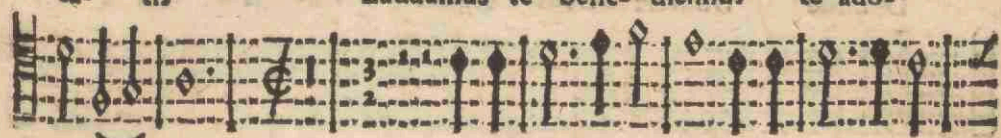 Laudamus te bene- dicimus te ado-
3
2